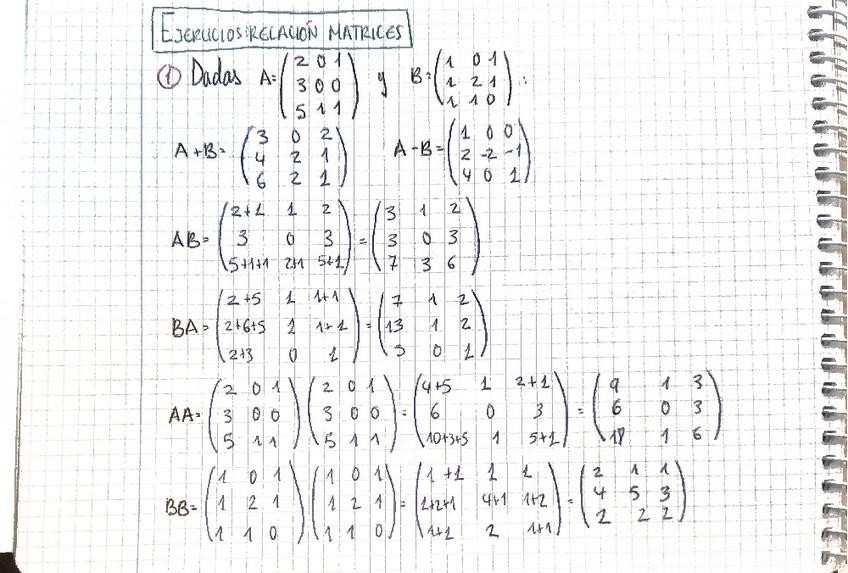 EJERCICIOS: RELACIÓN MATRICES
① Dadas A= (2 0 1 / 3 0 0 / 5 1 1) y B= (1 0 1 / 1 2 1 / 1 1 0) :
A+B= (3 0 2 / 4 2 1 / 6 2 1) A-B= (1 0 0 / 2 -2 -1 / 4 0 1)
AB= (2+1 1 2 / 3 0 3 / 5+1+1 2+1 5+1) = (3 1 2 / 3 0 3 / 7 3 6)
BA= (2+5 1 1+1 / 2+6+5 1 1+1 / 2+3 0 1) = (7 1 2 / 13 1 2 / 5 0 1)
AA= (2 0 1 / 3 0 0 / 5 1 1) (2 0 1 / 3 0 0 / 5 1 1) = (4+5 1 2+1 / 6 0 3 / 10+3+5 1 5+1) = (9 1 3 / 6 0 3 / 18 1 6)
BB= (1 0 1 / 1 2 1 / 1 1 0) (1 0 1 / 1 2 1 / 1 1 0) = (1+1 1 1 / 1+2+1 4+1 1+2 / 1+1 2 1+1) = (2 1 1 / 4 5 3 / 2 2 2)